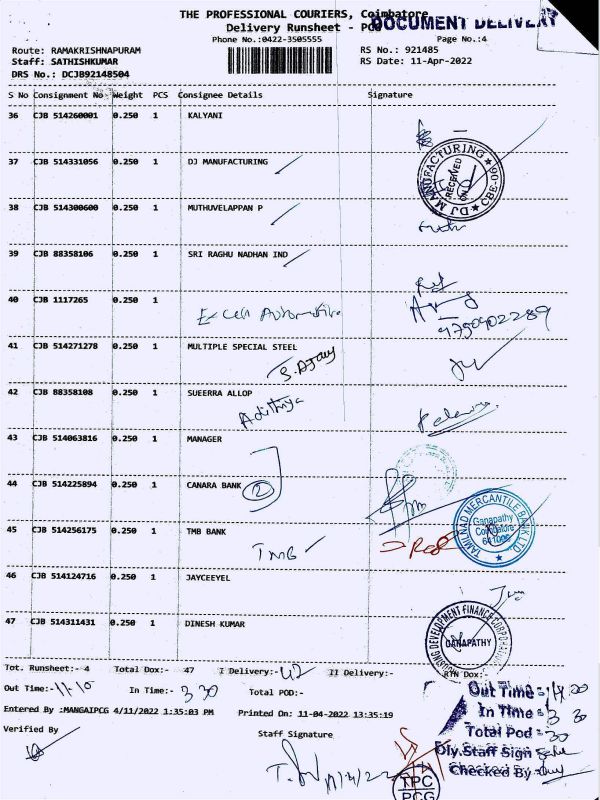 THE PROFESSIONAL COURIERS, Coimbatore
DOCUMENT DELIVERY
Delivery Runsheet - PCG
Phone No.:0422-3505555 Page No.:4
Route: RAMAKRISHNAPURAM RS No.: 921485
Staff: SATHISHKUMAR RS Date: 11-Apr-2022
DRS No.: DCJB92148504
S No Consignment No Weight PCS Consignee Details Signature
36 CJB 514260001 0.250 1 KALYANI
37 CJB 514331056 0.250 1 DJ MANUFACTURING
DJ MANUFACTURING CBE-06 RECEIVED ON
38 CJB 514300600 0.250 1 MUTHUVELAPPAN P
39 CJB 88358106 0.250 1 SRI RAGHU NADHAN IND
40 CJB 1117265 0.250 1
Excell Automotive
41 CJB 514271278 0.250 1 MULTIPLE SPECIAL STEEL
S. Ajay
42 CJB 88358108 0.250 1 SUEERRA ALLOP
Adithya
43 CJB 514063816 0.250 1 MANAGER
44 CJB 514225894 0.250 1 CANARA BANK 2
TAMILNAD MERCANTILE BANK LTD Ganapathy Coimbatore 641006
45 CJB 514256175 0.250 1 TMB BANK
TMB
46 CJB 514124716 0.250 1 JAYCEEYEL
47 CJB 514311431 0.250 1 DINESH KUMAR
HOUSING DEVELOPMENT FINANCE CORPORATION GANAPATHY
Tot. Runsheet:- 4 Total Dox:- 47 I Delivery:- 42 II Delivery:- RTN Dox:-
Out Time:- 11-10 In Time:- 3 30 Total POD:-
Out Time :-
In Time :- 3 30
Entered By :MANGAIPCG 4/11/2022 1:35:03 PM Printed On: 11-04-2022 13:35:19
Total Pod :- 30
Verified By Staff Signature
Dly.Staff Sign
Checked By :-
TPC
PCG